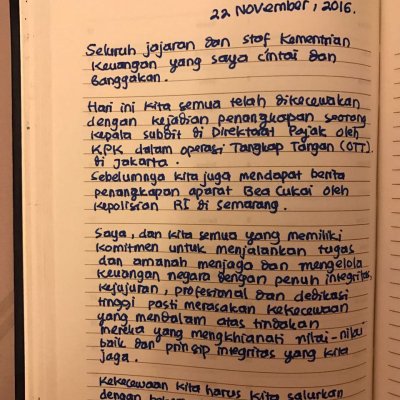 22 November, 2016.
Seluruh jajaran dan staf Kementrian
Keuangan yang saya cintai dan
banggakan.
Hari ini kita semua telah dikecewakan
dengan kejadian penangkapan seorang
kepala subdit di Direktorat Pajak oleh
KPK dalam operasi Tangkap Tangan (OTT).
di Jakarta.
Sebelumnya kita juga mendapat berita
penangkapan aparat Bea Cukai oleh
Kepolisian RI di Semarang.
Saya, dan kita semua yang memiliki
komitmen untuk menjalankan tugas
dan amanah menjaga dan mengelola
keuangan negara dengan penuh integritas,
kejujuran, profesional dan dedikasi
tinggi pasti merasakan kekecewaan
yang mendalam atas tindakan
mereka yang mengkhianati nilai-nilai
baik dan prinsip integritas yang kita
jaga.
Kekecewaan kita harus kita salurkan
dengan